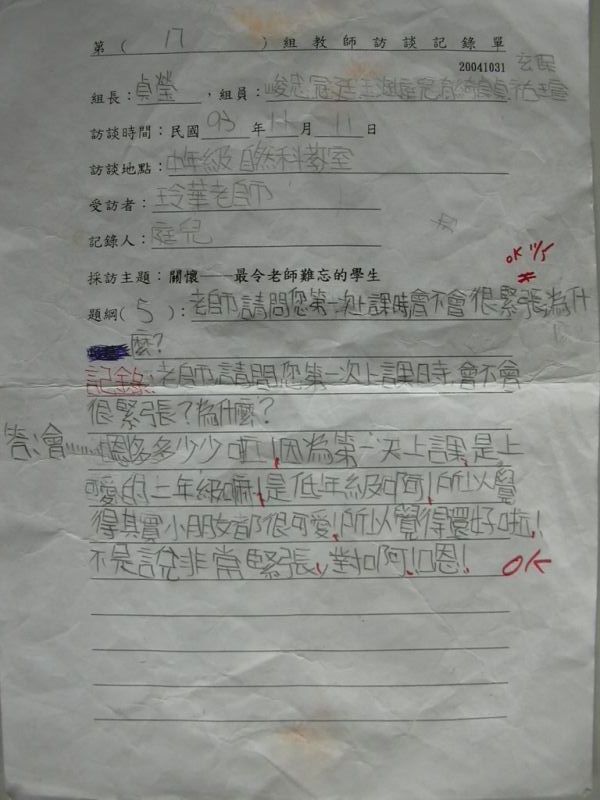 第( 17 )組教師訪談記錄單
20041031
組長:貞瑩,組員:
訪談時間:民國 93 年 11 月 11 日
訪談地點:中年級自然科教室
受訪者:玲華老師
記錄人:庭兒
OK 11/5
採訪主題:關懷——最令老師難忘的學生
題綱( 5 ):老師請問您第一次上課時會不會很緊張為什
麼?
記錄:老師請問您第一次上課時會不會
很緊張?為什麼?
答:會……嗯多多少少啦!因為第一次上課,是上
可愛的二年級嘛!是低年級啊!所以覺
得其實小朋友都很可愛!所以覺得還好啦!
不是說非常緊張,對啊!嗯! OK